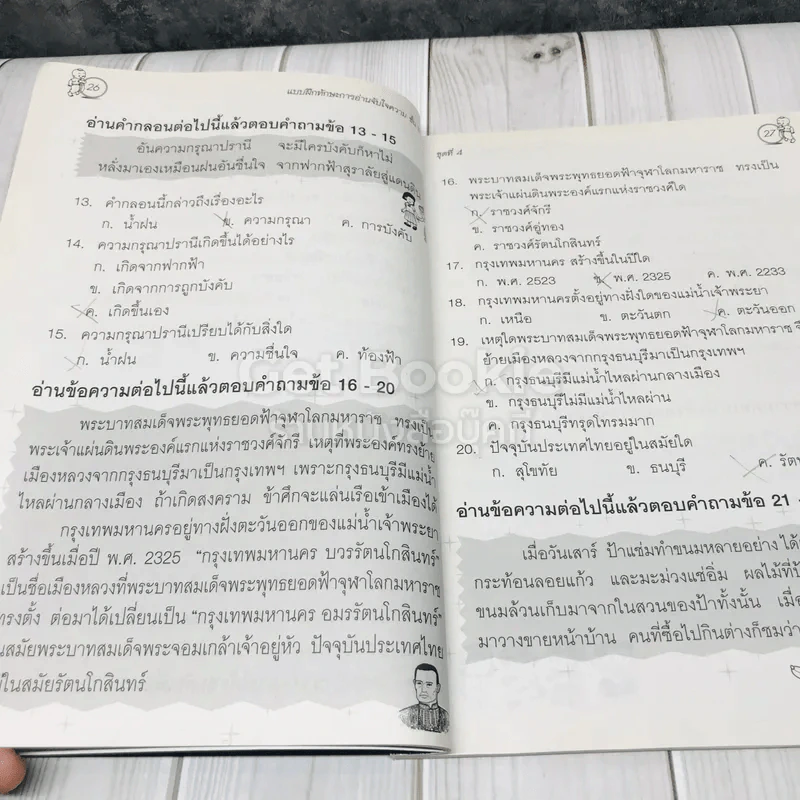 26
แบบฝึกทักษะการอ่านจับใจความ ชั้น
อ่านคำกลอนต่อไปนี้แล้วตอบคำถามข้อ 13 - 15
อันความกรุณาปรานี จะมีใครบังคับก็หาไม่
หลั่งมาเองเหมือนฝนอันชื่นใจ จากฟากฟ้าสุราลัยสู่แดนดิน
13. คำกลอนนี้กล่าวถึงเรื่องอะไร
ก. น้ำฝน ข. ความกรุณา ค. การบังคับ
14. ความกรุณาปรานีเกิดขึ้นได้อย่างไร
ก. เกิดจากฟากฟ้า
ข. เกิดจากการถูกบังคับ
ค. เกิดขึ้นเอง
15. ความกรุณาปรานีเปรียบได้กับสิ่งใด
ก. น้ำฝน ข. ความชื่นใจ ค. ท้องฟ้า
อ่านข้อความต่อไปนี้แล้วตอบคำถามข้อ 16 - 20
พระบาทสมเด็จพระพุทธยอดฟ้าจุฬาโลกมหาราช ทรงเป็น
พระเจ้าแผ่นดินพระองค์แรกแห่งราชวงศ์จักรี เหตุที่พระองค์ทรงย้าย
เมืองหลวงจากกรุงธนบุรีมาเป็นกรุงเทพฯ เพราะกรุงธนบุรีมีแม่น้ำ
ไหลผ่านกลางเมือง ถ้าเกิดสงคราม ข้าศึกจะแล่นเรือเข้าเมืองได้
กรุงเทพมหานครอยู่ทางฝั่งตะวันออกของแม่น้ำเจ้าพระยา
สร้างขึ้นเมื่อปี พ.ศ. 2325 "กรุงเทพมหานคร บวรรัตนโกสินทร์"
เป็นชื่อเมืองหลวงที่พระบาทสมเด็จพระพุทธยอดฟ้าจุฬาโลกมหาราช
ทรงตั้ง ต่อมาได้เปลี่ยนเป็น "กรุงเทพมหานคร อมรรัตนโกสินทร์"
นสมัยพระบาทสมเด็จพระจอมเกล้าเจ้าอยู่หัว ปัจจุบันประเทศไทย
ในสมัยรัตนโกสินทร์
27
ชุดที่ 4
16. พระบาทสมเด็จพระพุทธยอดฟ้าจุฬาโลกมหาราช ทรงเป็น
พระเจ้าแผ่นดินพระองค์แรกแห่งราชวงศ์ใด
ก. ราชวงศ์จักรี
ข. ราชวงศ์อู่ทอง
ค. ราชวงศ์รัตนโกสินทร์
17. กรุงเทพมหานคร สร้างขึ้นในปีใด
ก. พ.ศ. 2523 ข. พ.ศ. 2325 ค. พ.ศ. 2233
18. กรุงเทพมหานครตั้งอยู่ทางฝั่งใดของแม่น้ำเจ้าพระยา
ก. เหนือ ข. ตะวันตก ค. ตะวันออก
19. เหตุใดพระบาทสมเด็จพระพุทธยอดฟ้าจุฬาโลกมหาราช จึ
ย้ายเมืองหลวงจากกรุงธนบุรีมาเป็นกรุงเทพฯ
ก. กรุงธนบุรีมีแม่น้ำไหลผ่านกลางเมือง
ข. กรุงธนบุรีไม่มีแม่น้ำไหลผ่าน
ค. กรุงธนบุรีทรุดโทรมมาก
20. ปัจจุบันประเทศไทยอยู่ในสมัยใด
ก. สุโขทัย ข. ธนบุรี ค. รัต
อ่านข้อความต่อไปนี้แล้วตอบคำถามข้อ 21 -
เมื่อวันเสาร์ ป้าแช่มทำขนมหลายอย่าง ได้แ
กระท้อนลอยแก้ว และมะม่วงแช่อิ่ม ผลไม้ที่ป้
ขนมล้วนเก็บมาจากในสวนของป้าทั้งนั้น เมื่อ
มาวางขายหน้าบ้าน คนที่ซื้อไปกินต่างก็ชมว่า
Get Bookie
ร้านหนังสือบุ๊คกี้